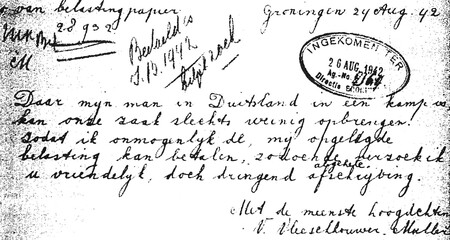 van belastingpapier
Groningen 24 Aug. 42
28932
INGEKOMEN TER
26 AUG. 1942
Ag.-No.
Directie
Daar mijn man in Duitsland in een kamp is
kan onze zaak slechts weinig opbrengen.
zodat ik onmogelijk de, mij opgelegde
belasting kan betalen, zodoende verzoek ik
u vriendelijk, doch dringend afschrijving.
Met de meeste hoogachten
V. Vleeschhouwer. Muller